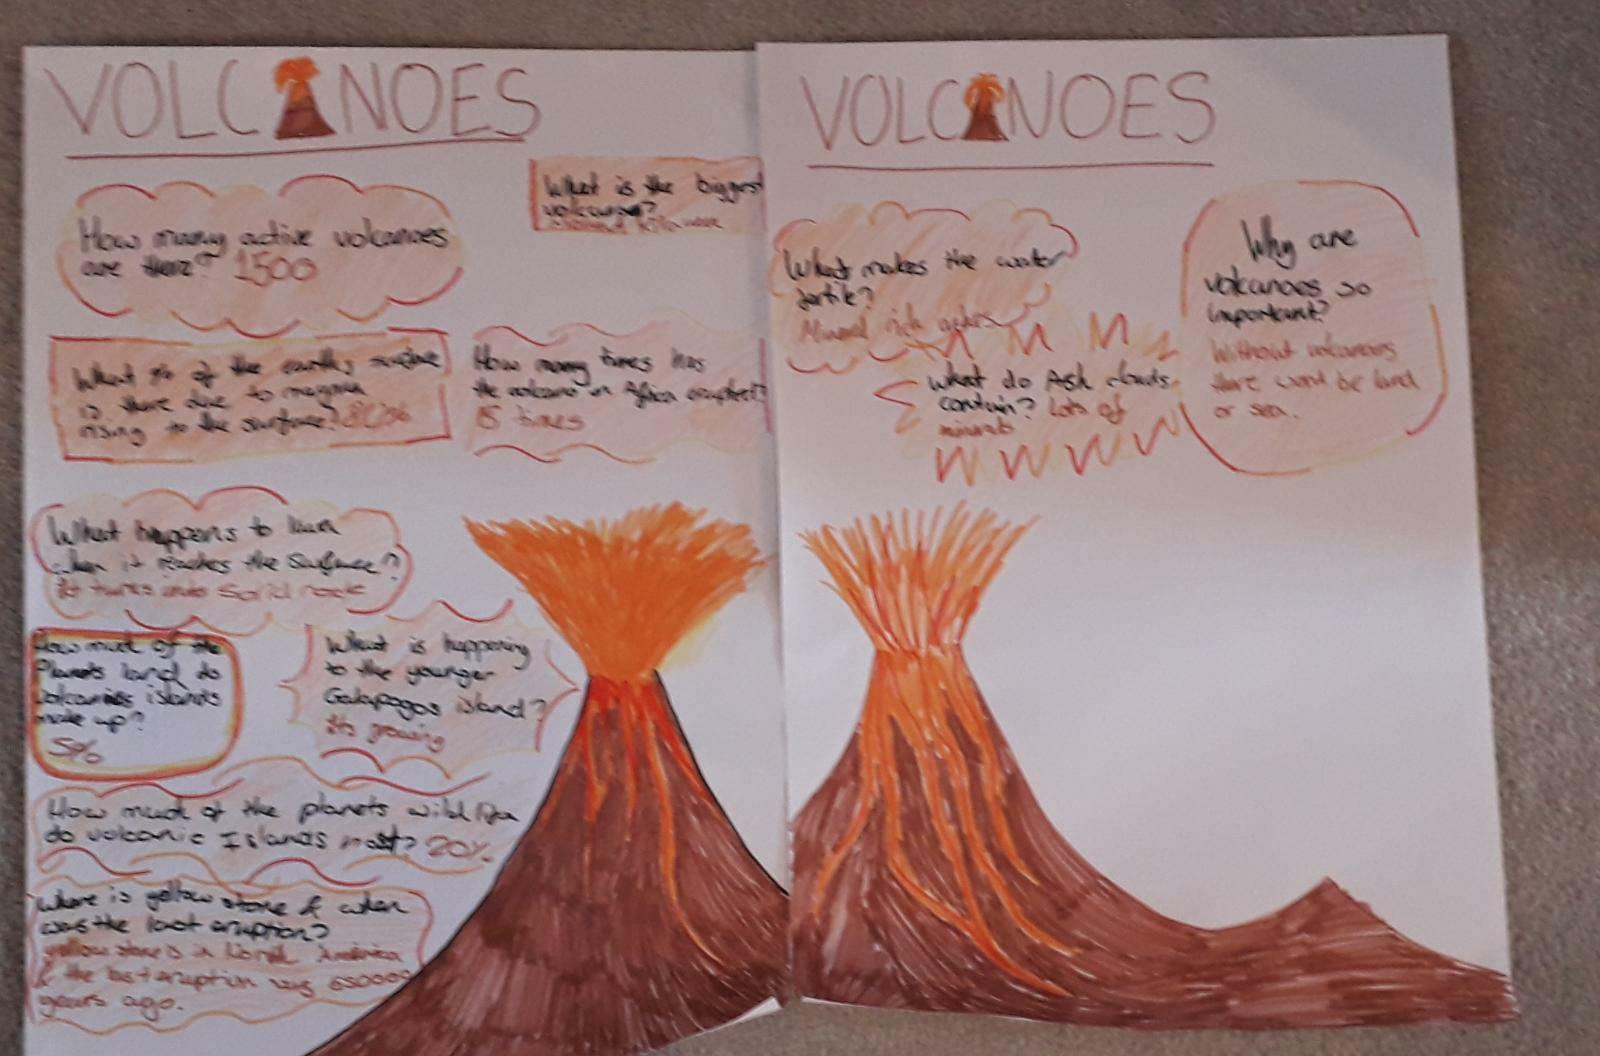 VOLCANOES
How many active volcanoes
are there? 1500
What is the biggest
volcano?
What % of the earths surface
is there due to magma
rising to the surface? 80%
How many times has
the volcano in Africa erupted?
15 times
What happens to lava
when it reaches the surface?
It turns into solid rock
How much of the
Planets land do
volcanic islands
make up?
5%
What is happening
to the younger
Galapagos island?
Its growing
How much of the planets wild life
do volcanic Islands host? 20%
Where is yellow stone & when
was the last eruption?
yellow stone is in North America
& the last eruption was 650000
years ago.
VOLCANOES
What makes the water
fertile?
Mineral rich ashes
What do Ash clouds
contain? Lots of
minerals
Why are
volcanoes so
important?
Without volcanoes
there wont be land
or sea.